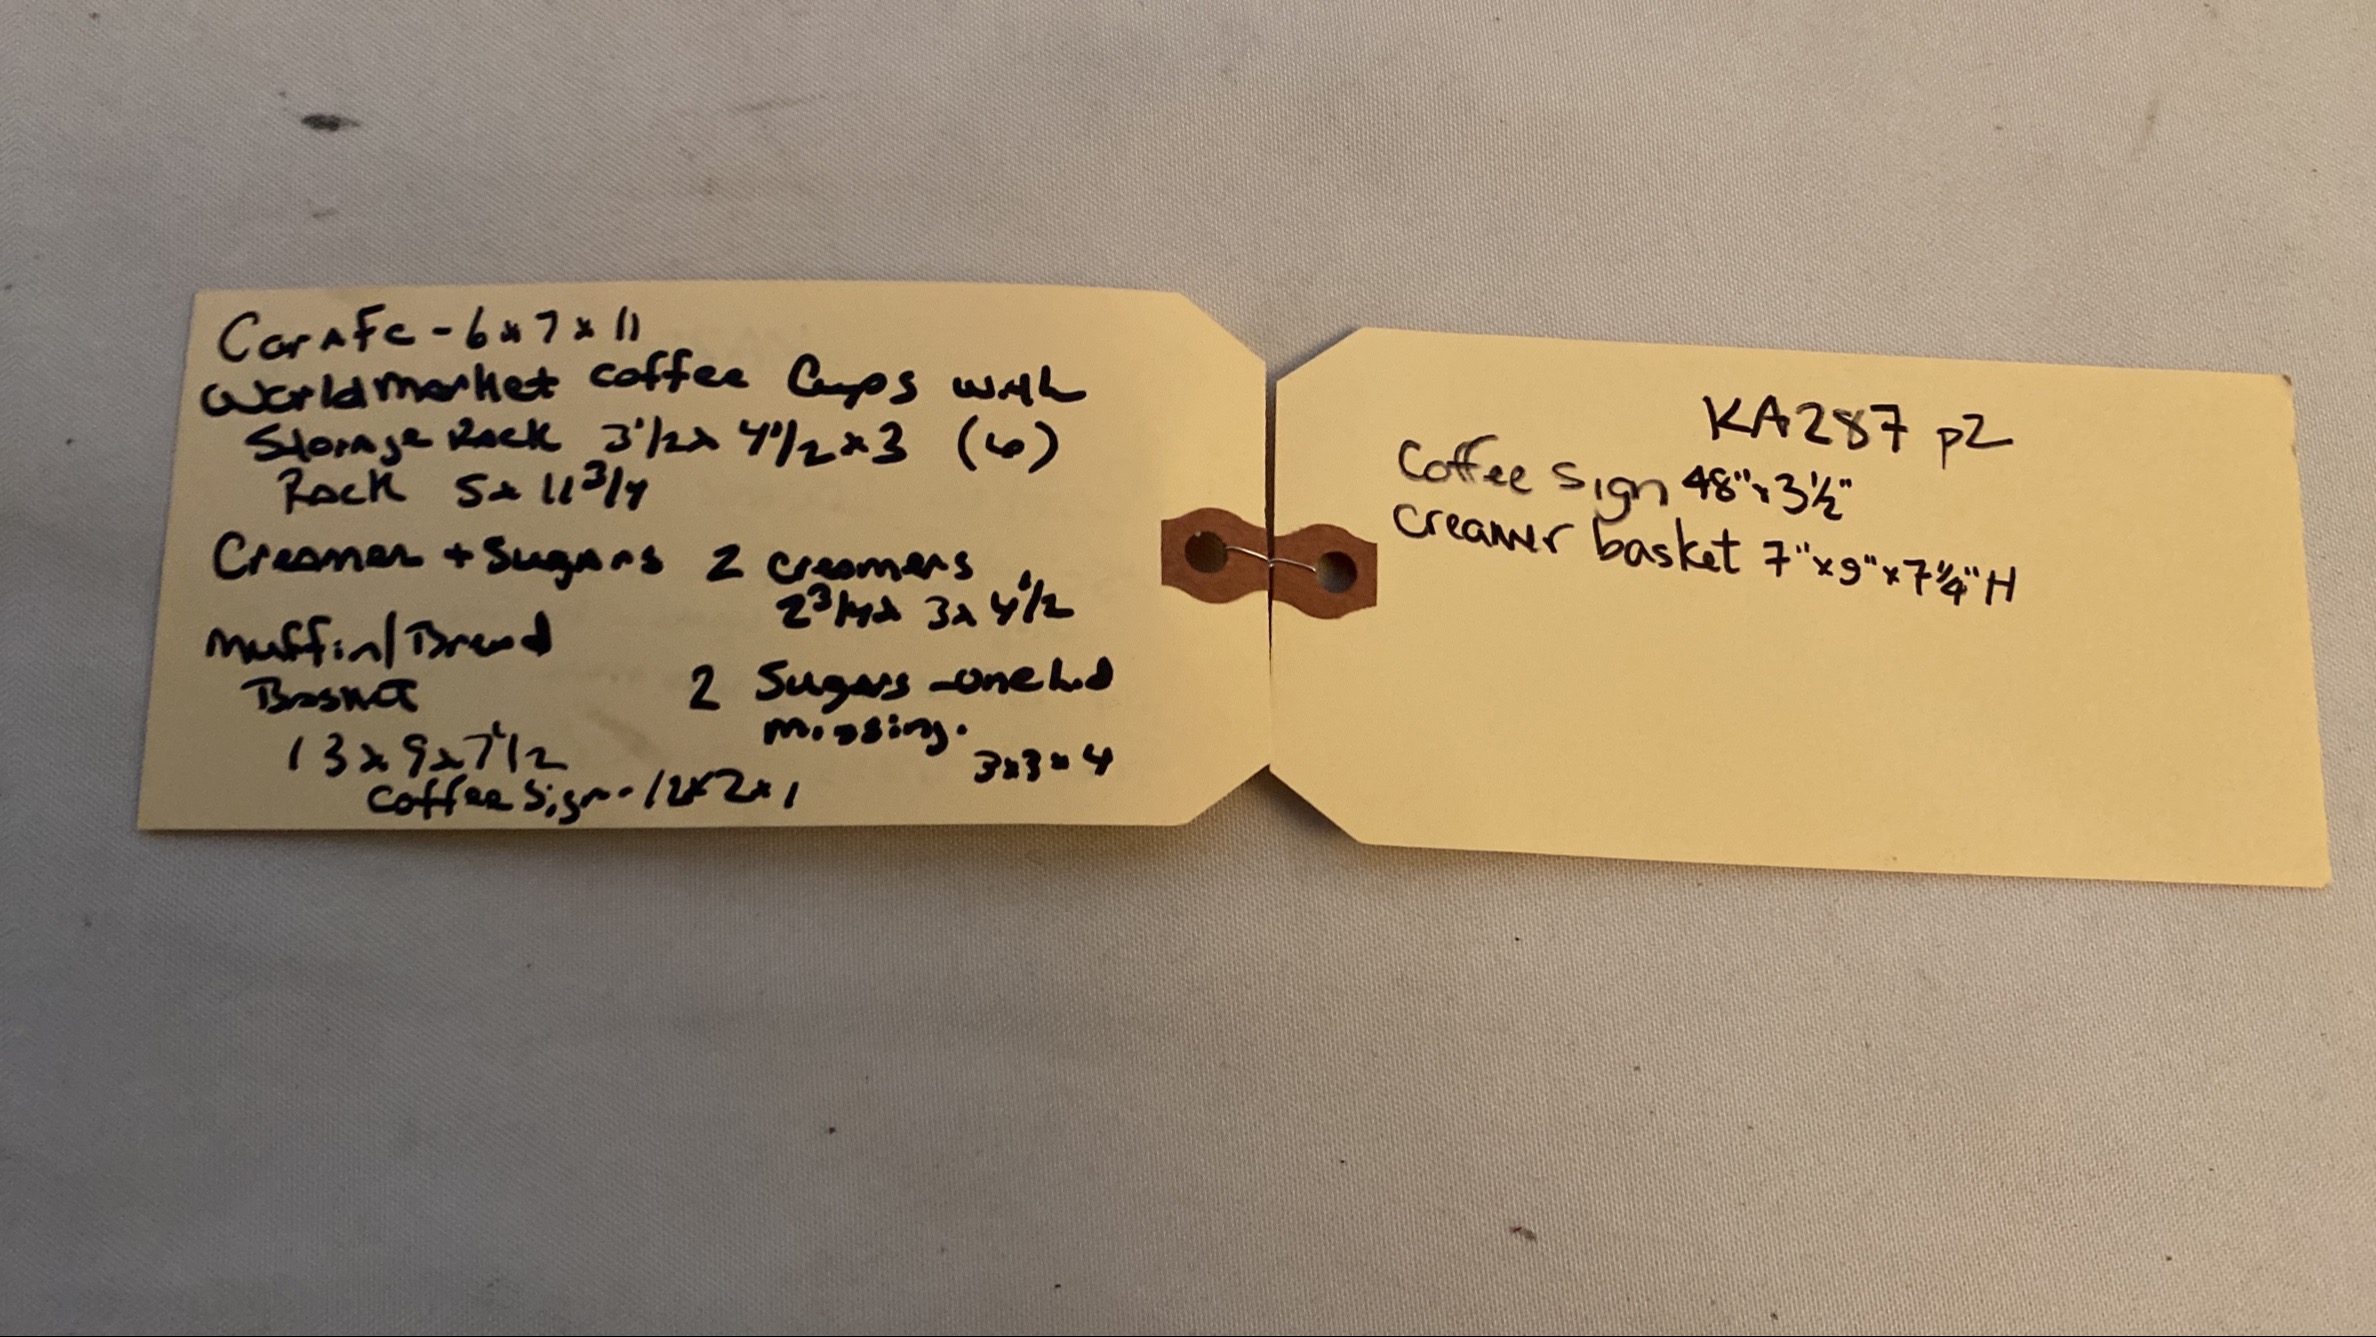 Carafe - 6 x 7 x 11
World Market coffee Cups with
Storage Rack 3 1/2 x 4 1/2 x 3 (6)
Rack 5 x 11 3/4
Creamer + Sugars 2 creamers
2 3/4 x 3 x 4 1/2
Muffin/Bread
Basket
2 Sugars - one lid
missing.
13 x 9 x 7 1/2
3 x 3 x 4
Coffee Sign - 12 x 2 x 1
KA287 p2
Coffee Sign 48" x 3 1/2"
creamer basket 7" x 9" x 7 1/4" H